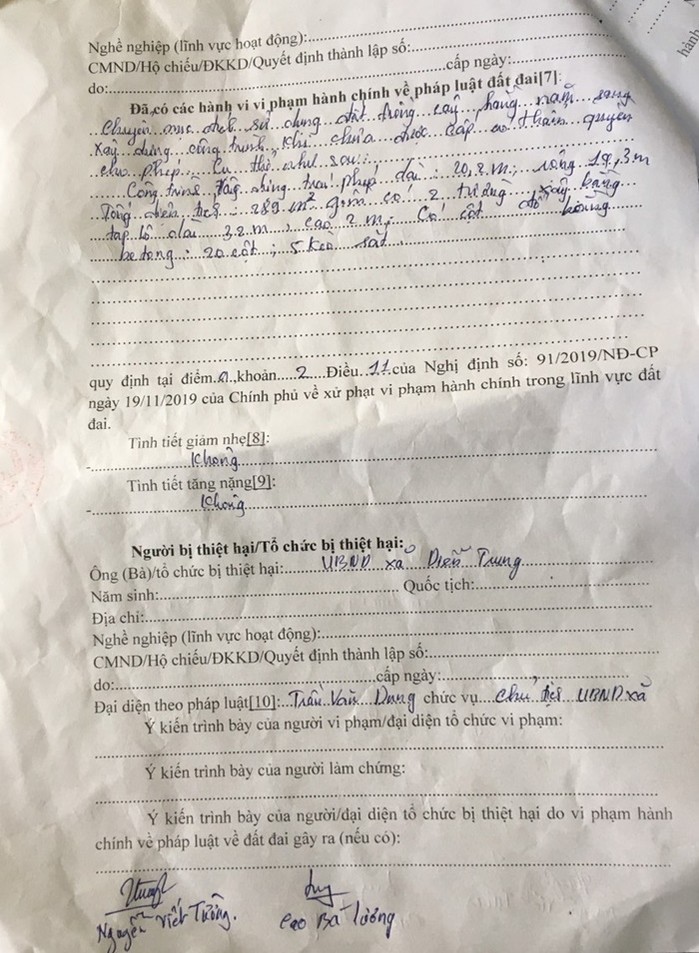 Nghề nghiệp (lĩnh vực hoạt động):
CMND/Hộ chiếu/ĐKKD/Quyết định thành lập số:
do: cấp ngày:
Đã có các hành vi vi phạm hành chính về pháp luật đất đai[7]:
Chuyển mục đích sử dụng đất trồng cây hằng năm sang
Xây dựng công trình, khi chưa được cấp có thẩm quyền
cho phép. Cụ thể như sau:
Công trình xây dựng trái phép dài: 20,8 m; rộng 18,3 m
Tổng diện tích: 289 m² gồm có 2 tường xây bằng
táp lô dài 32 m, cao 2 m; Có cột đổ bằng
bê tông: 20 cột; 5 kèo sắt
quy định tại điểm a, khoản 2 Điều 11 của Nghị định số: 91/2019/NĐ-CP
ngày 19/11/2019 của Chính phủ về xử phạt vi phạm hành chính trong lĩnh vực đất
đai.
Tình tiết giảm nhẹ[8]:
- Không
Tình tiết tăng nặng[9]:
- Không
Người bị thiệt hại/Tổ chức bị thiệt hại:
Ông (Bà)/tổ chức bị thiệt hại: UBND xã Diễn Trung
Năm sinh: Quốc tịch:
Địa chỉ:
Nghề nghiệp (lĩnh vực hoạt động):
CMND/Hộ chiếu/ĐKKD/Quyết định thành lập số:
do: cấp ngày:
Đại diện theo pháp luật[10]: Trần Văn Dung chức vụ Chủ tịch UBND xã
Ý kiến trình bày của người vi phạm/đại diện tổ chức vi phạm:
Ý kiến trình bày của người làm chứng:
Ý kiến trình bày của người/đại diện tổ chức bị thiệt hại do vi phạm hành
chính về pháp luật về đất đai gây ra (nếu có):
Nguyễn Viết Trường. Cao Bá Lương